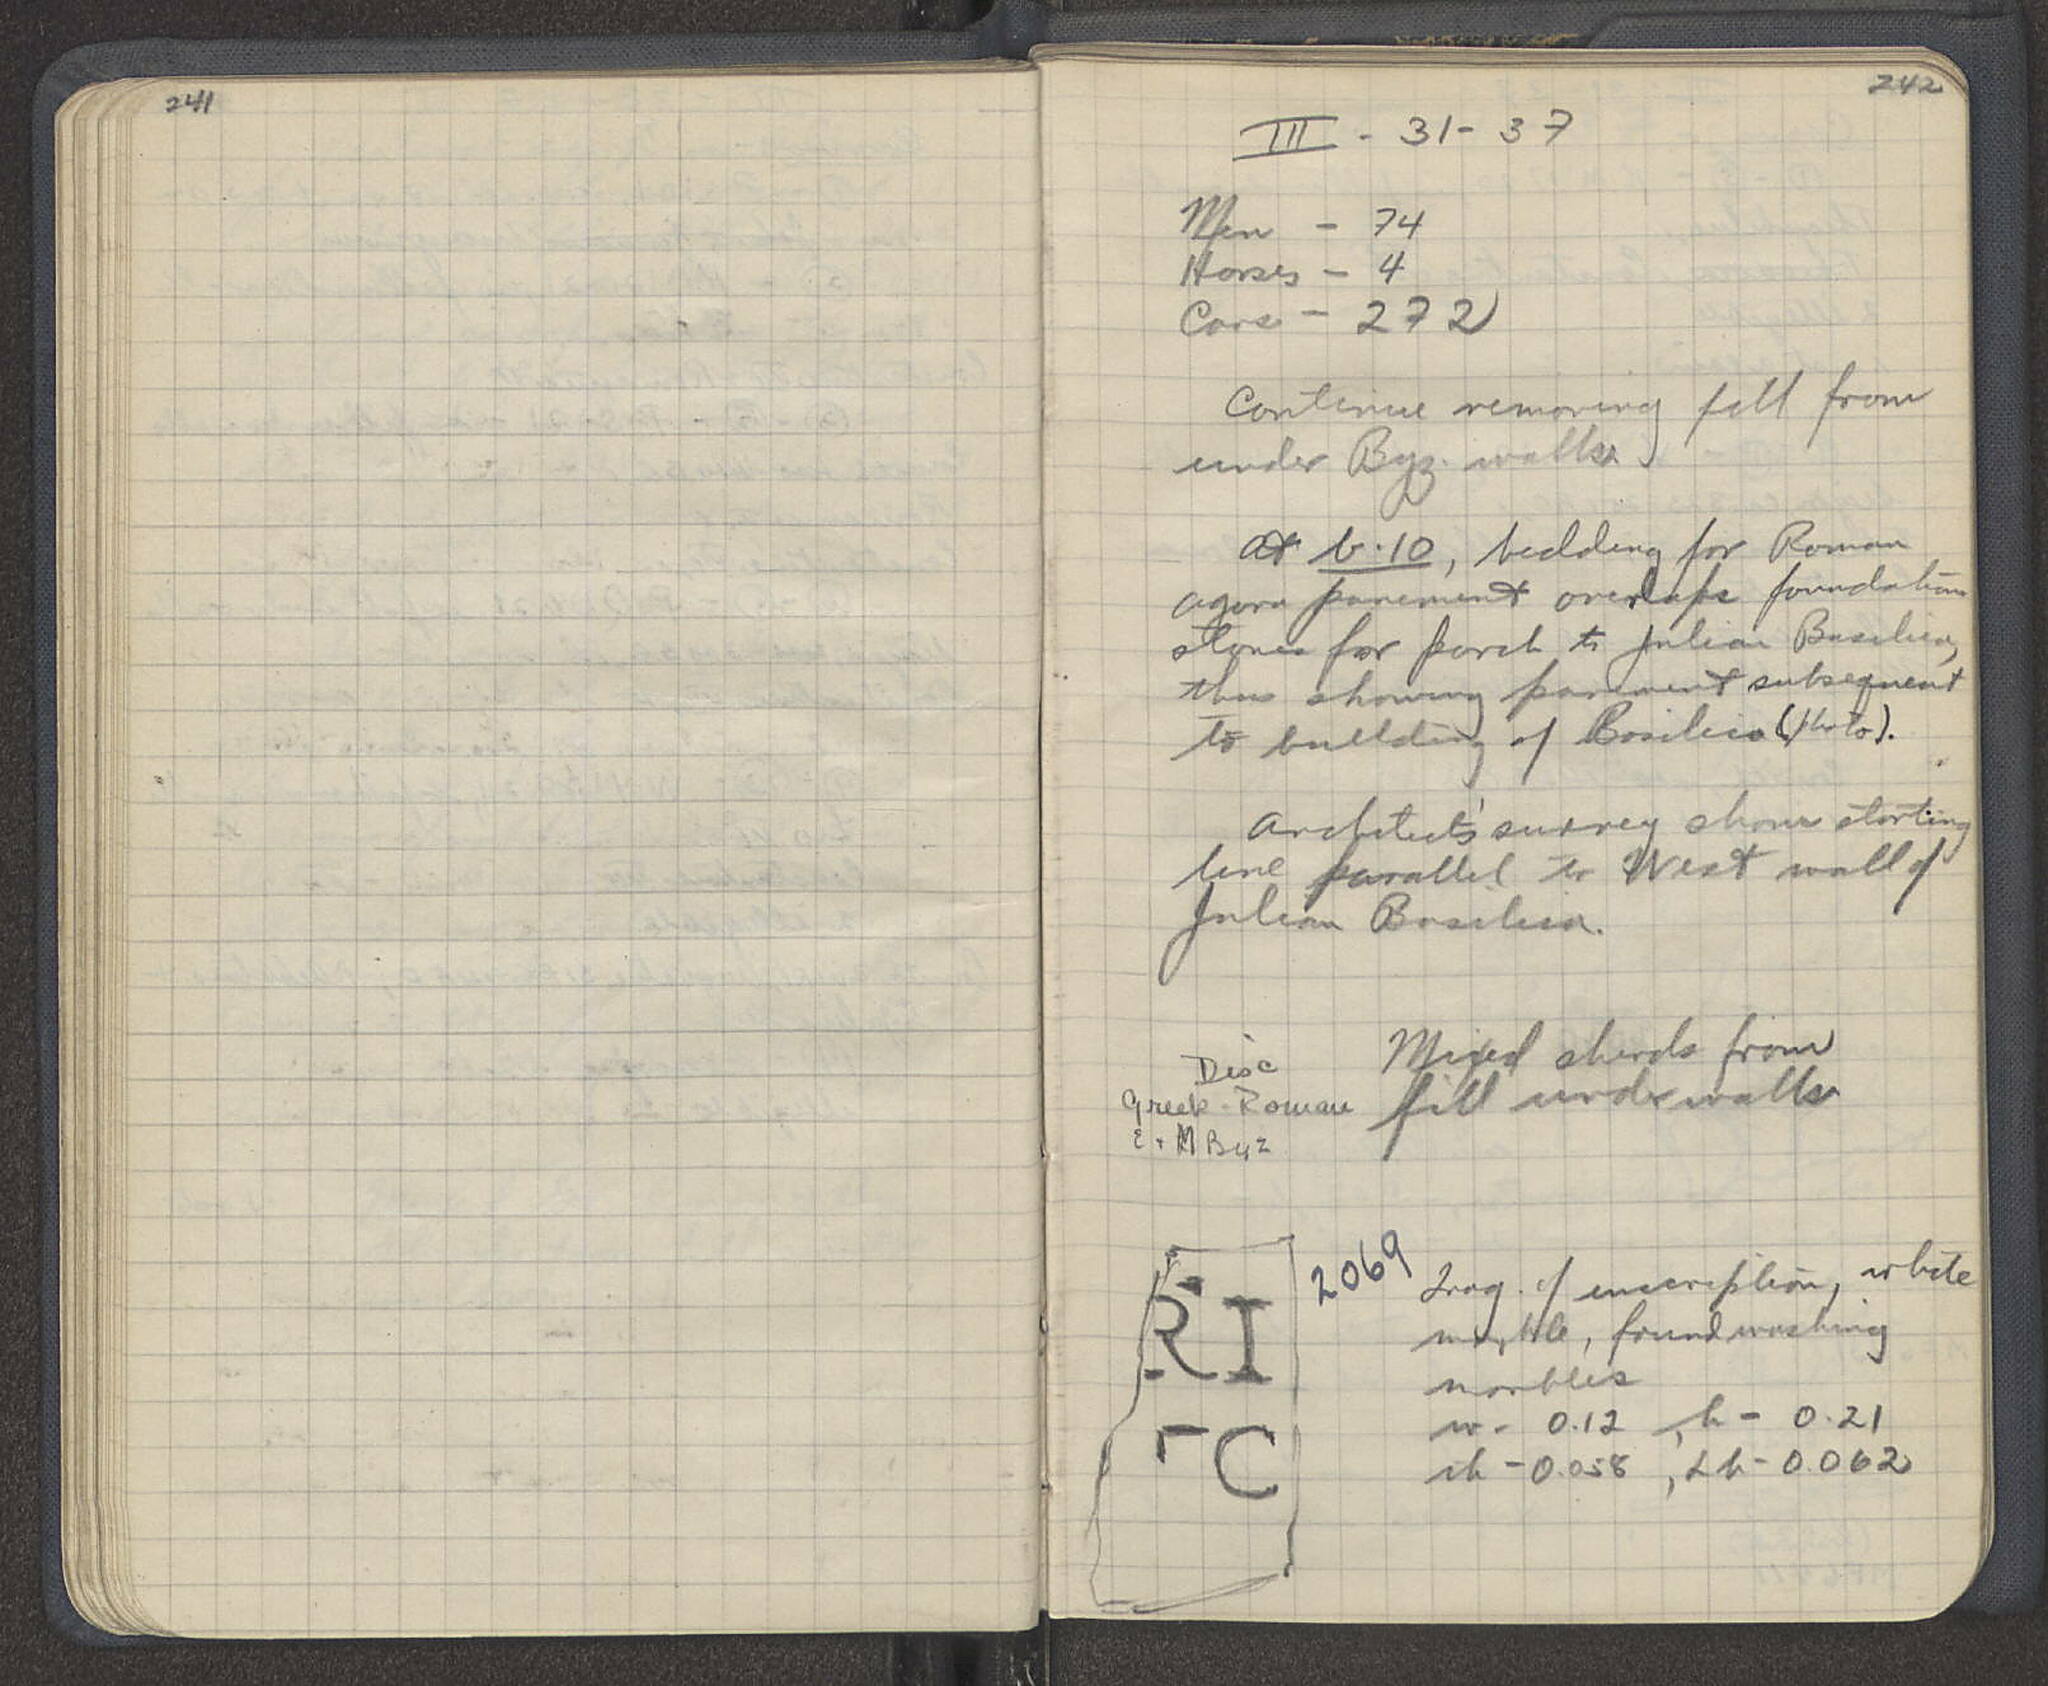 241
242
III - 31 - 37
Men - 74
Horses - 4
Cars - 272
Continue removing fill from
under Byz. walls.
At b.10, bedding for Roman
agora pavement overlaps foundation
stones for porch to Julian Basilica,
thus showing pavement subsequent
to building of Basilica (photo).
Architect's survey shows starting
line parallel to West wall of
Julian Basilica.
Disc
Greek-Roman
E + M Byz
Mixed sherds from
fill under walls
2069
Frag. of inscription, white
marble, found washing
marbles
w - 0.12, h - 0.21
th - 0.058, Lh - 0.062
RI
C